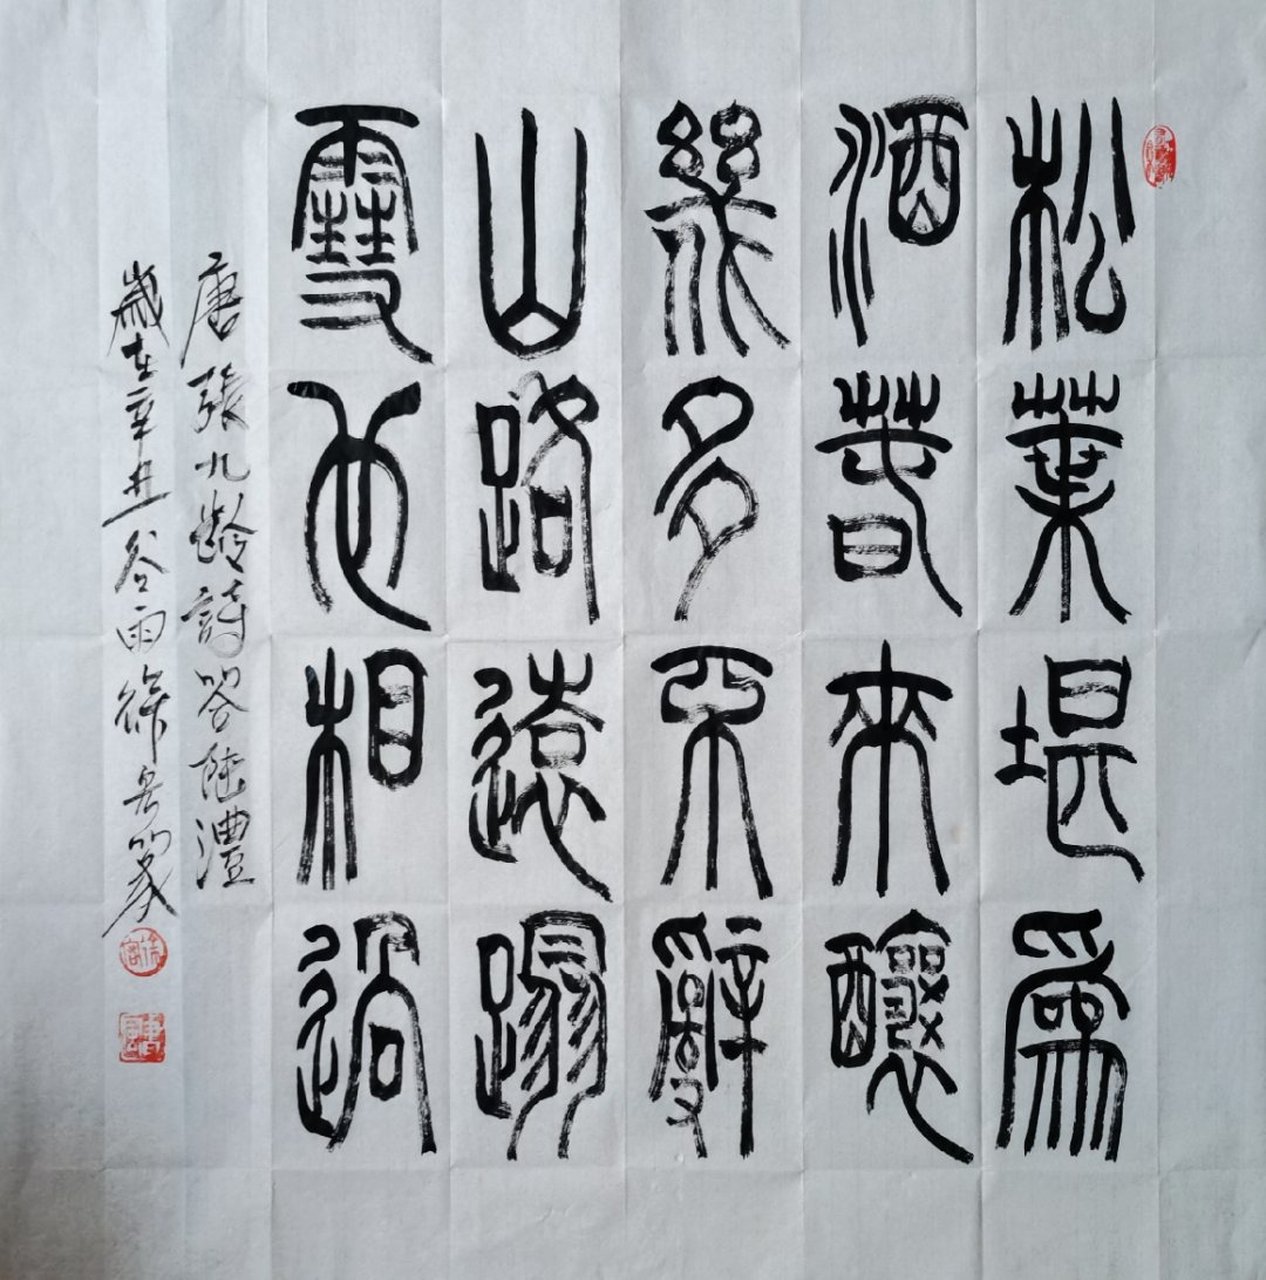 松葉堪爲
酒春來釀
幾多不辭
山路遠蹋
雪也相過
唐張九齡詩答陸澧
歲在辛丑谷雨徐篆